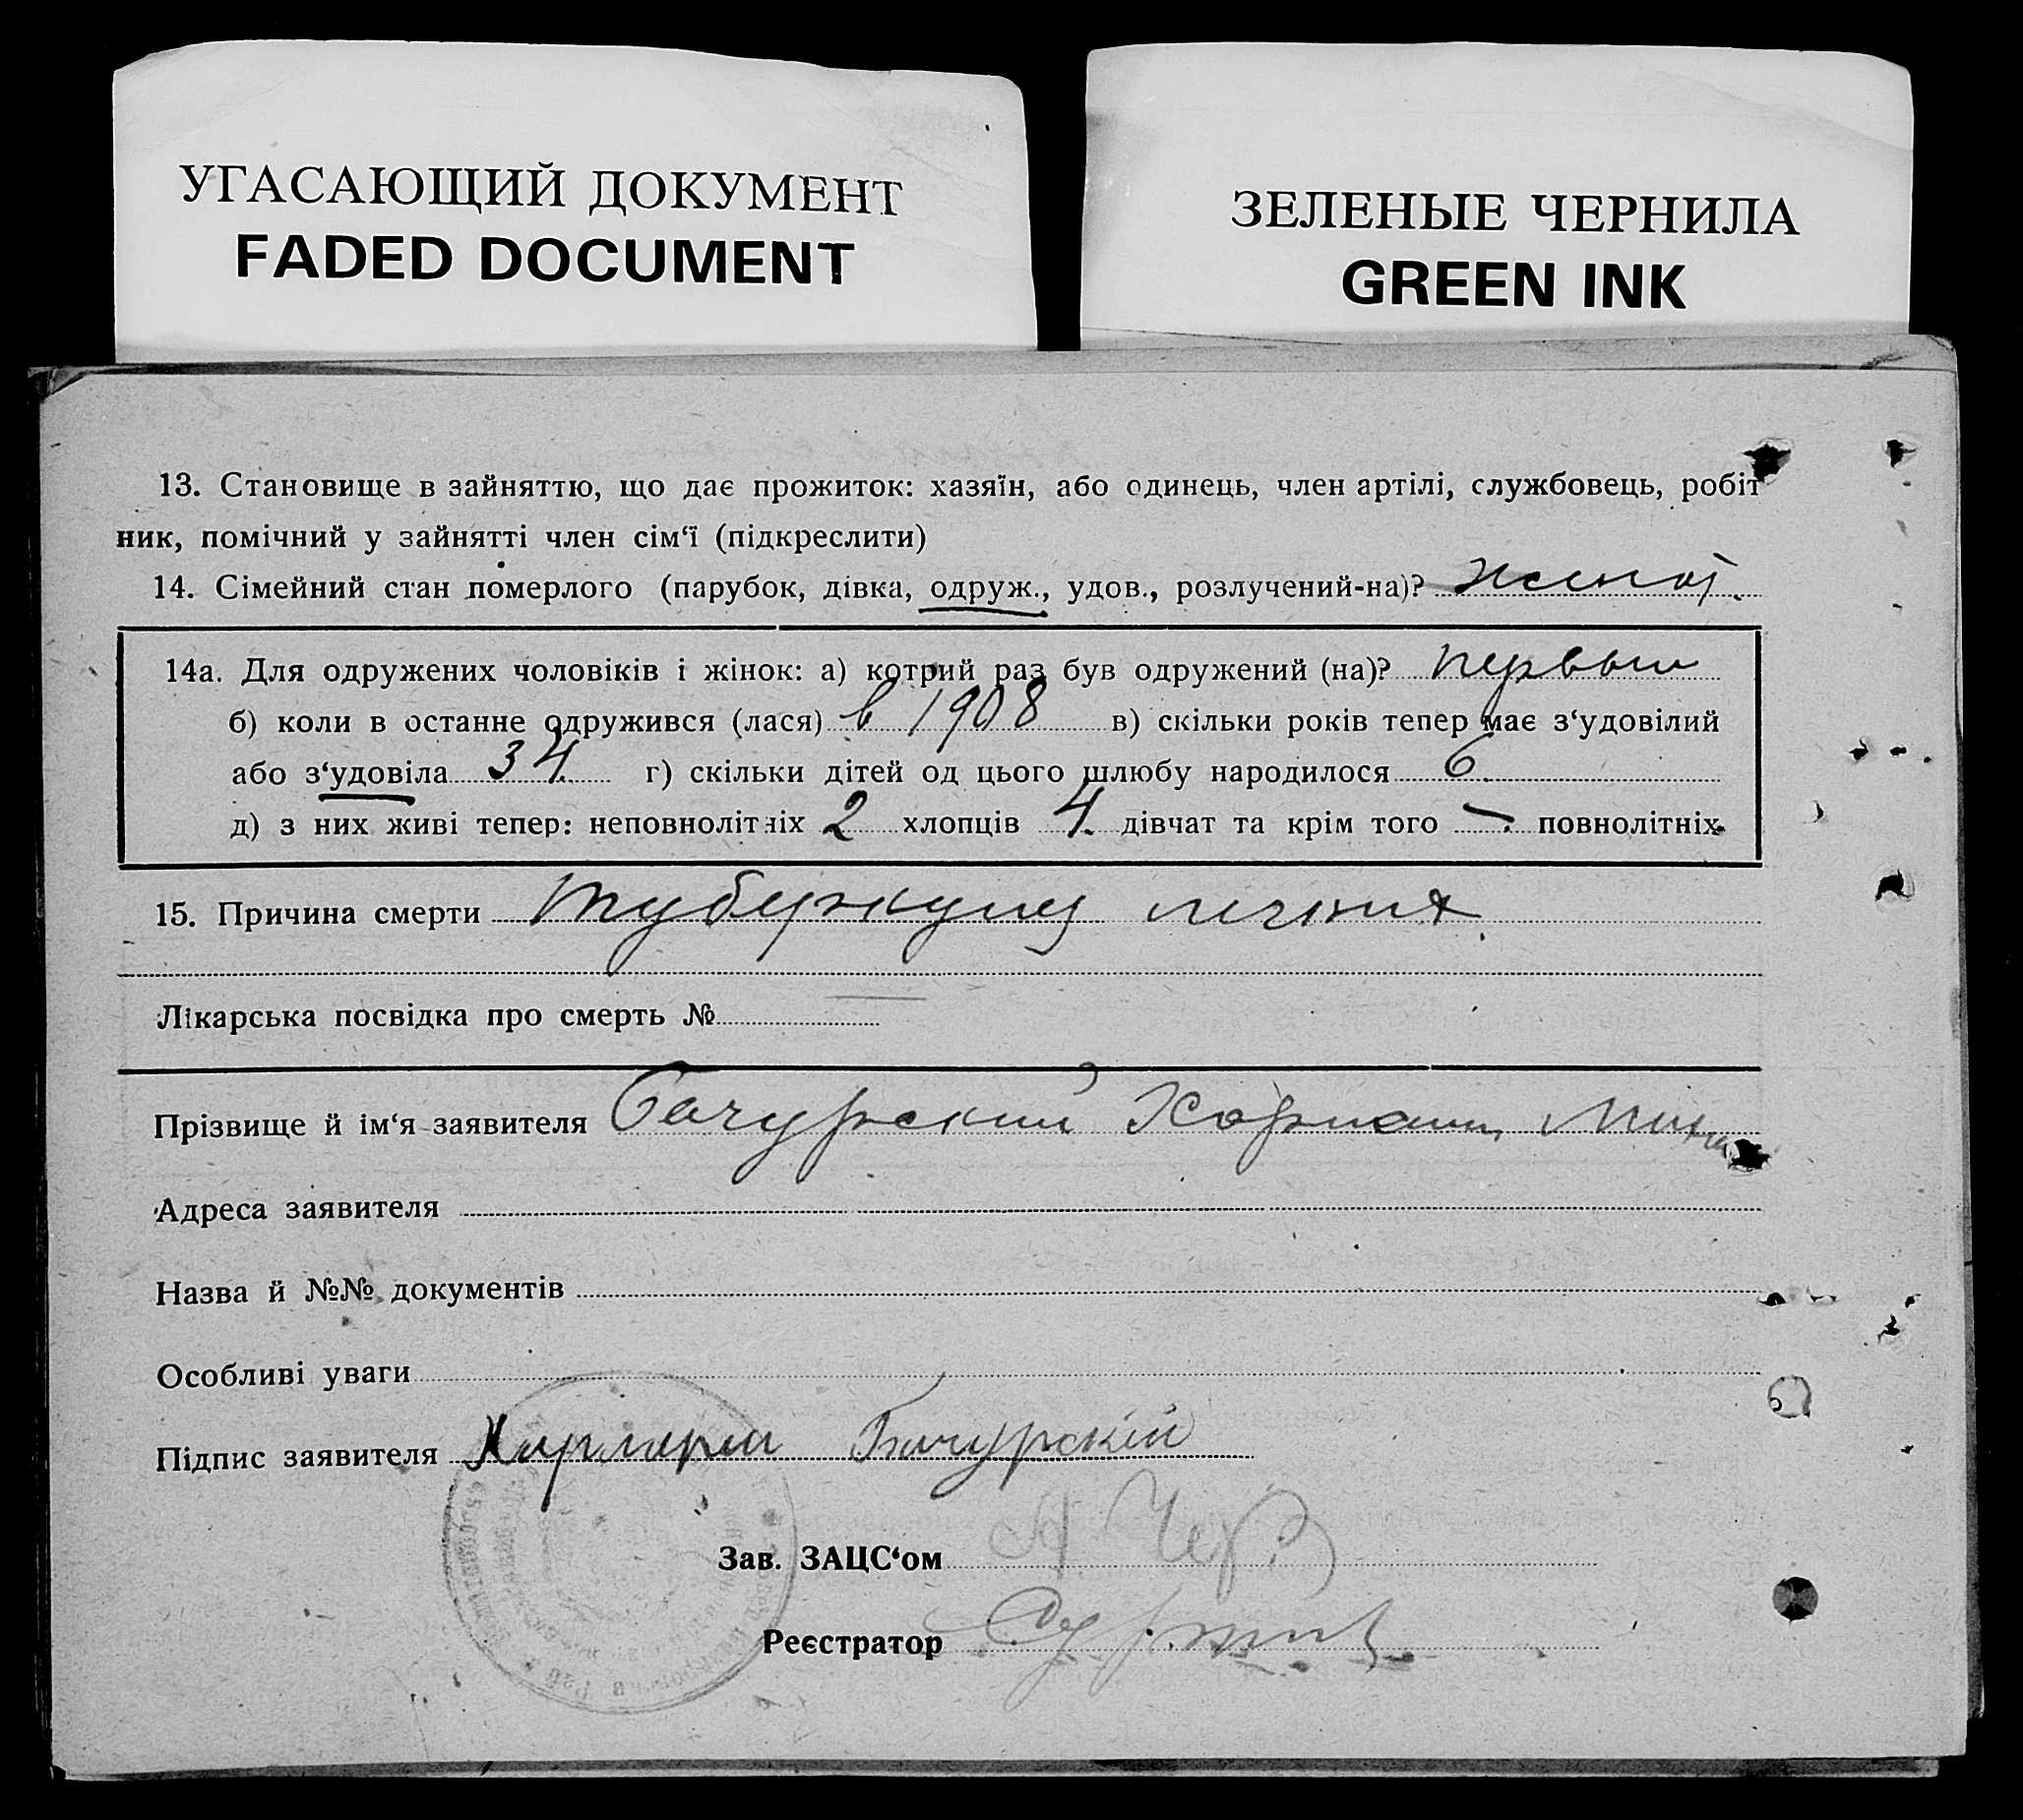 УГАСАЮЩИЙ ДОКУМЕНТ
FADED DOCUMENT
ЗЕЛЕНЫЕ ЧЕРНИЛА
GREEN INK
13. Становище в зайняттю, що дає прожиток: хазяїн, або одинець, член артілі, службовець, робіт
ник, помічний у зайнятті член сім‘ї (підкреслити)
14. Сімейний стан померлого (парубок, дівка, одруж., удов., розлучений-на)? женат.
14а. Для одружених чоловіків і жінок: а) котрий раз був одружений (на)? первый
б) коли в останнє одружився (лася) в 1908 в) скільки років тепер має з‘удовілий
або з‘удовіла 34. г) скільки дітей од цього шлюбу народилося 6.
д) з них живі тепер: неповнолітніх 2 хлопців 4. дівчат та крім того —. повнолітніх.
15. Причина смерти туберкулез легких.
Лікарська посвідка про смерть № —
Прізвище й ім‘я заявителя Бачурский
Адреса заявителя
Назва й №№ документів
Особливі уваги
Підпис заявителя Бачурскій
Зав. ЗАЦС‘ом
Реєстратор